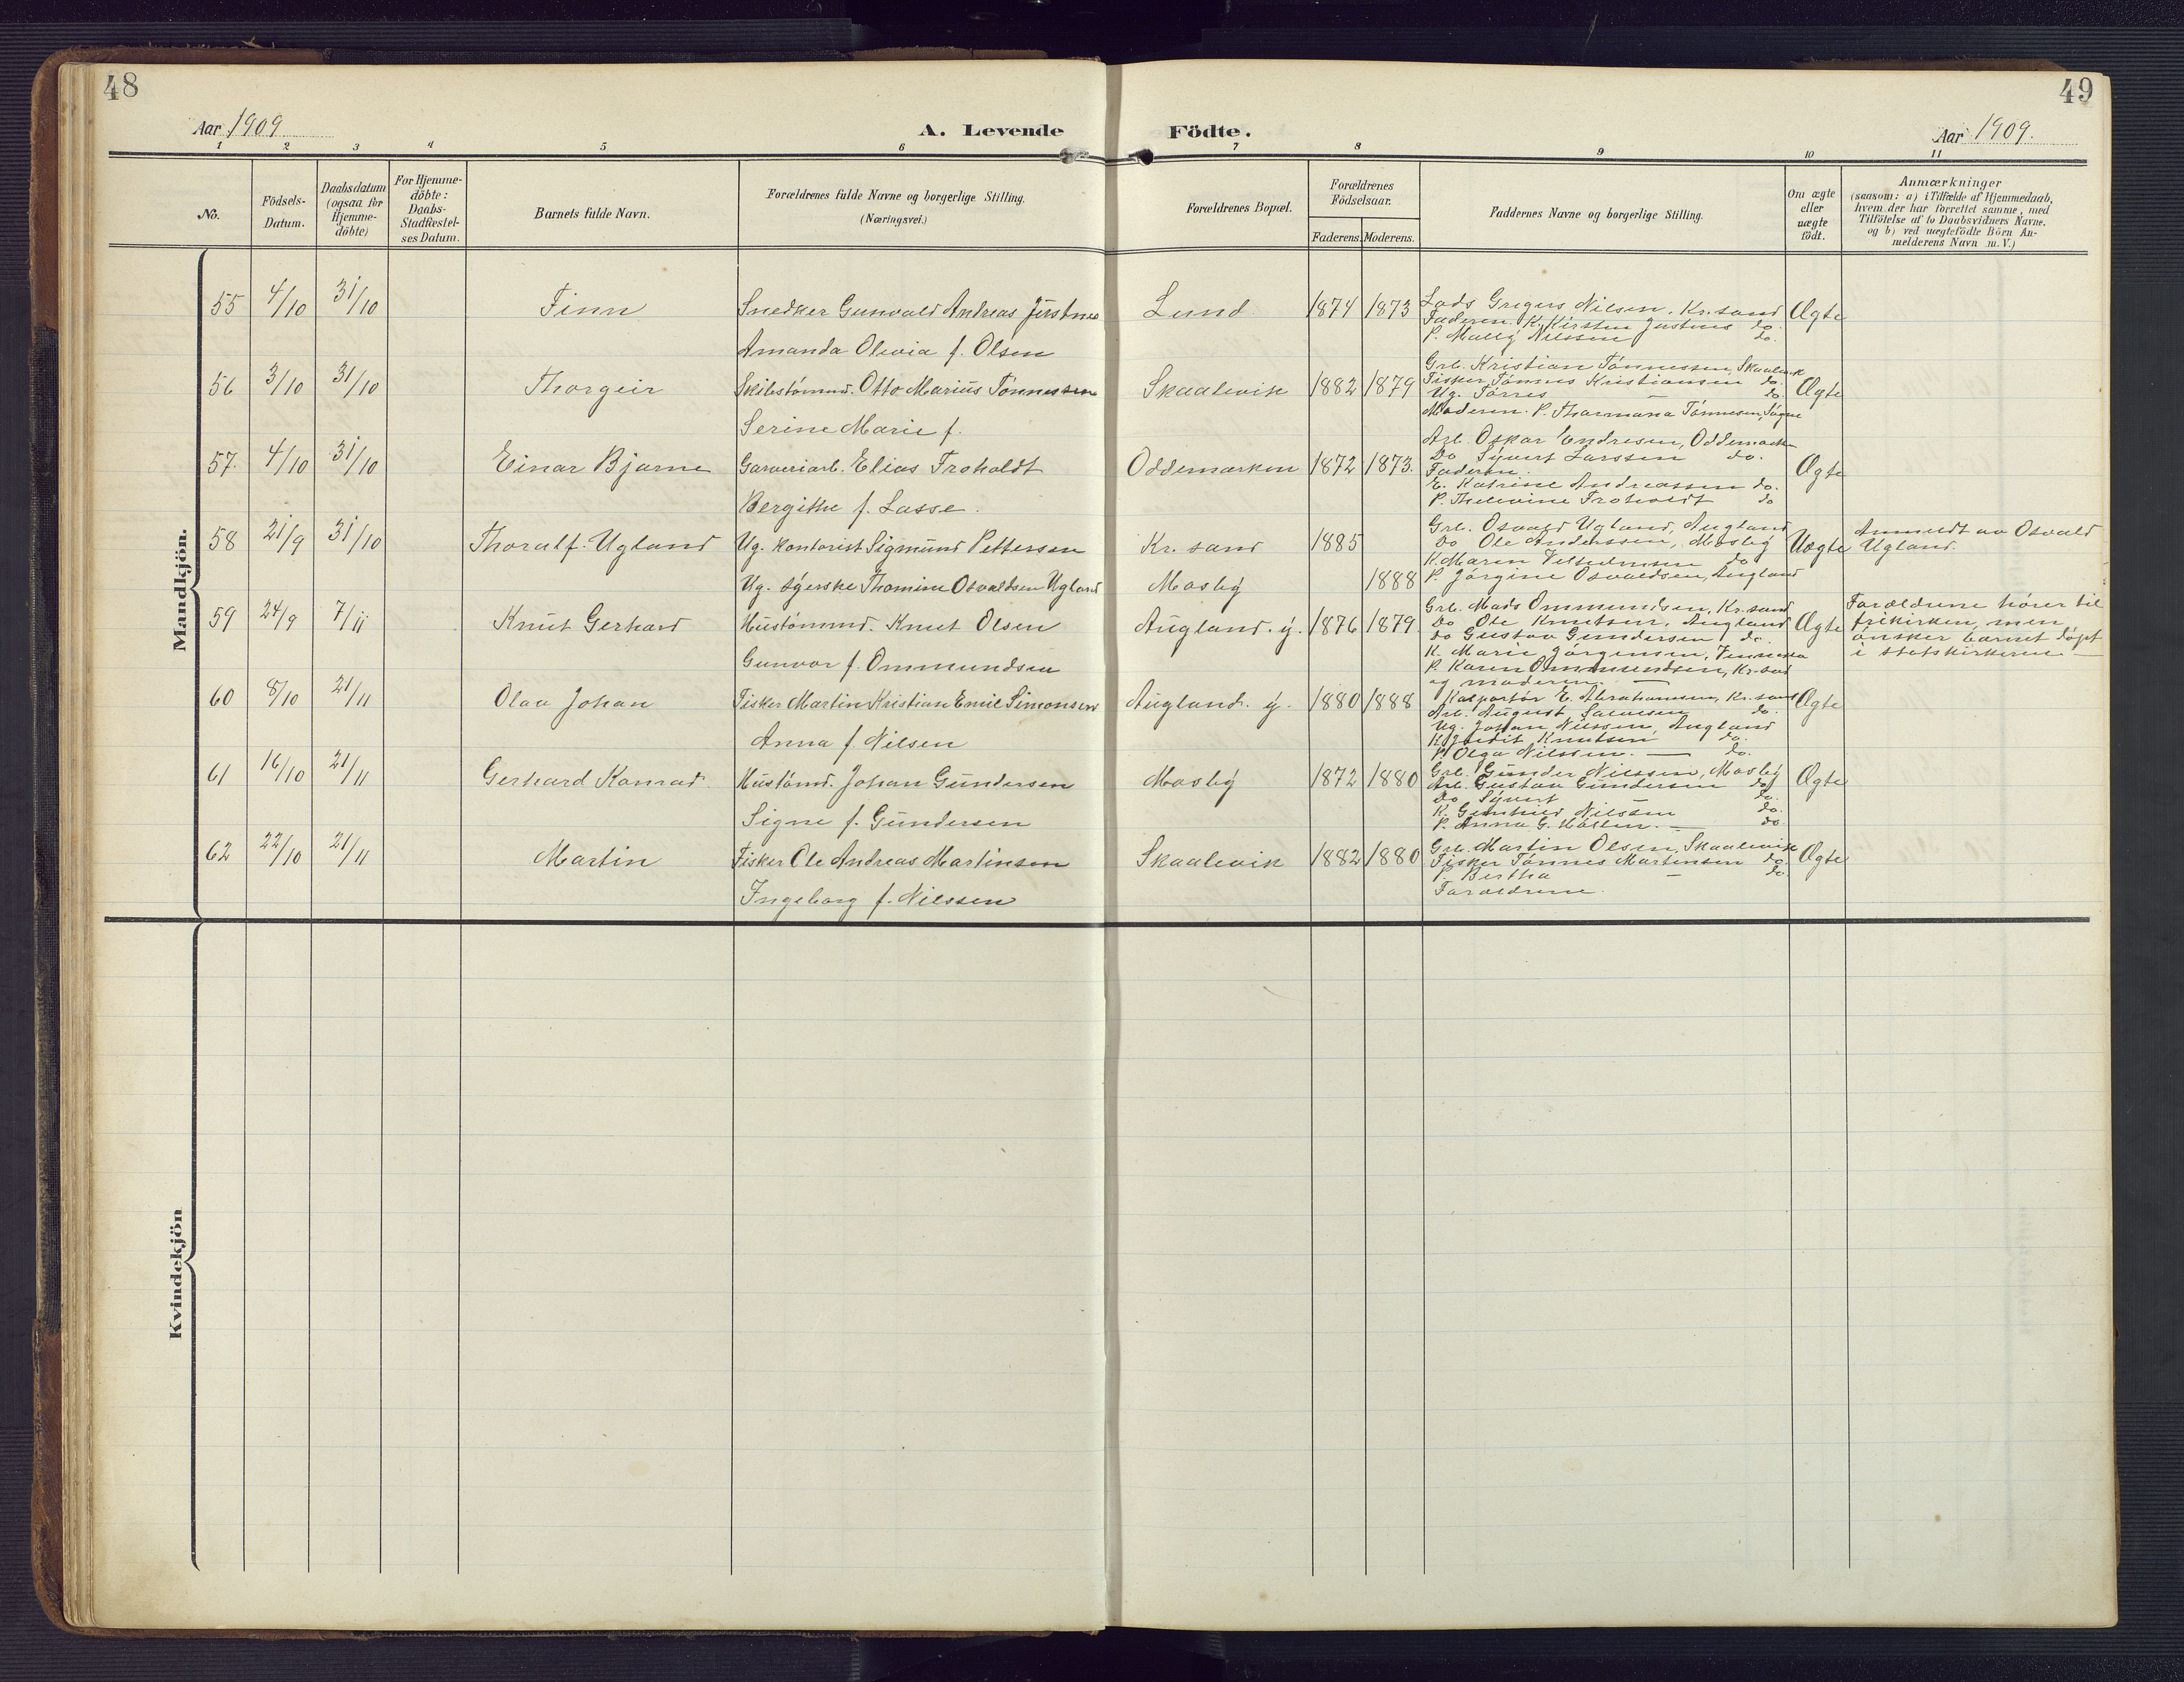 48
49
Aar 1909
A. Levende
Födte.
Aar 1909.
1 2 3 4 5 6 7 8 9 10 11
No.
Födsels-
Datum.
Daabsdatum
(ogsaa for
Hjemme-
döbte)
For Hjemme-
döbte:
Daabs-
Stadfæstel-
ses Datum.
Barnets fulde Navn.
Forældrenes fulde Navne og borgerlige Stilling.
(Næringsvei.)
Forældrenes Bopæl.
Forældrenes
Födselsaar.
Faderens. Moderens.
Faddernes Navne og borgerlige Stilling.
Om ægte
eller
uægte
födt.
Anmærkninger
(saasom: a) i Tilfælde af Hjemmedaab,
hvem der har forrettet samme, med
Tilföielse af to Daabsvidners Navne,
og b) ved uægtefödte Börn An-
melderens Navn m. V.)
Mandkjön.
55 4/10 31/10 Finn Snedker Gunvald Andreas Lund 1874 1873 Ægte
Amanda Olivia f. Olsen
Lods Gregers Nilsen, Kr.sand
Faderen. K. Kirsten Justnes do.
P. Mally Nilssen do.
56 3/10 31/10 Thorgeir Skibstømmr. Otto Marius Tønnessen Skaalevik 1882 1879 Ægte
Serine Marie f.
Grb. Kristian Tønnessen, Skaalevik
Fisker Tønnes Kristiansen do.
Ug. Tørres — do.
Moderen. P. Thormana Tønnesen, Søgne
57. 4/10 31/10 Einar Bjarne Garveriarb. Elias Froholdt Oddemarken 1872 1873. Ægte
Bergithe f. Lasse.
Arb. Oskar Endresen, Oddemark
Do Syvert Larssen do.
Faderen.
E. Katrine Andreassen do.
P. Thelevine Froholdt do
58 21/9 31/10 Thoralf Ugland Ug. Kontorist Sigmund Pettersen Kr. sand 1885 Uægte
Ug. syerske Thomine Osvaldsen Ugland Mosby 1888
Grb. Osvald Ugland, Augland
Do Ole Anderssen, Mosby
K. Maren do
P. Jørgine Osvaldsen, Augland
Anmeldt av Osvald
Ugland.
59 24/9 7/11 Knut Gerhard Hustømmr. Knut Olsen Augland. y. 1876 1879 Ægte
Gunvor f. Ommundsen
Grb. Mads Ommundsen, Kr.sand
Do Ole Knutsen, Augland
Do Gustav Gundersen do.
K. Marie Jørgensen, Vennesla
P. Karen Ommundsen, Kr.sand
og moderen. —
Forældrene hører til
frikirken, men
ønsker barnet døpt
i statskirken. —
60 8/10 21/11 Olav Johan Fisker Martin Kristian Emil Simonsen Augland. y. 1880 1888 Ægte
Anna f. Nilsen
Kolportør E. Abrahamsen, Kr. sand
Arb. August do.
Ug. Johan Nilssen, Augland
K. Knutsen do.
P. Olga Nilssen. — do.
61 16/10 21/11 Gerhard Konrad Hustømr. Johan Gundersen Mosby 1872 1880 Ægte
Signe f. Gundersen
Grb. Gunder Nilssen, Mosby
Arb. Gustav Gundersen do
Do Syvert — do.
K. Gunhild Nilssen do.
P. Anna G. — do.
62 22/10 21/11 Martin Fisker Ole Andreas Martinsen Skaalevik 1882 1880 Ægte
Ingeborg f. Nilssen
Grb. Martin Olsen, Skaalevik
Fisker Tønnes Martinsen do.
P. Bertha — do.
Forældrene.
Kvindekjön